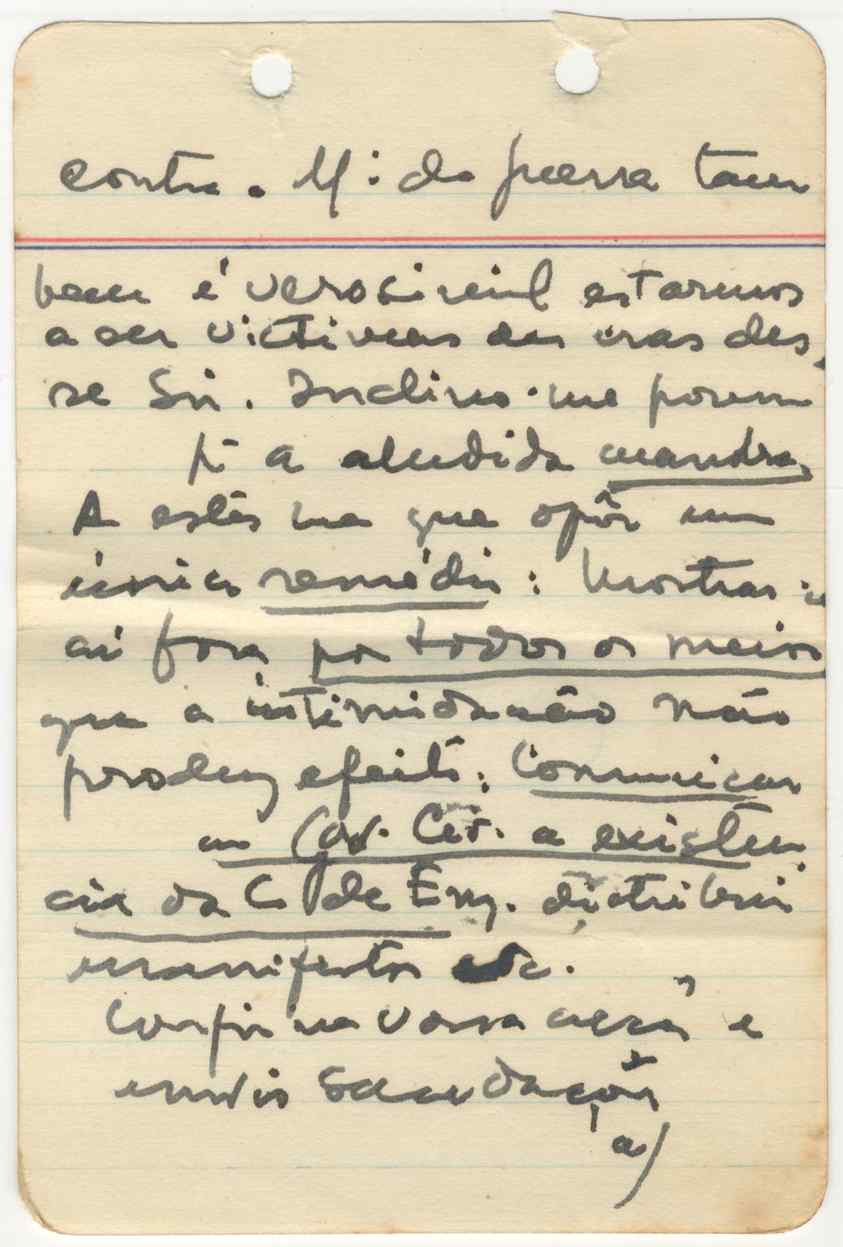 contra o M.º da guerra tam
bem é verosimil estarmos
a ser victimas das iras des-
se Snr. Inclino-me porem
pª a aludida manobra.
A esta há que opôr um
único remédio: Mostrar
aí fora por todos os meios
que a intimidação não
produz efeito; Comunicar
ao Gov. Civ. a existên
cia da C. de Eng. distribuir
manifestos etc.
Confio na vossa acção e
envio saudações
a)